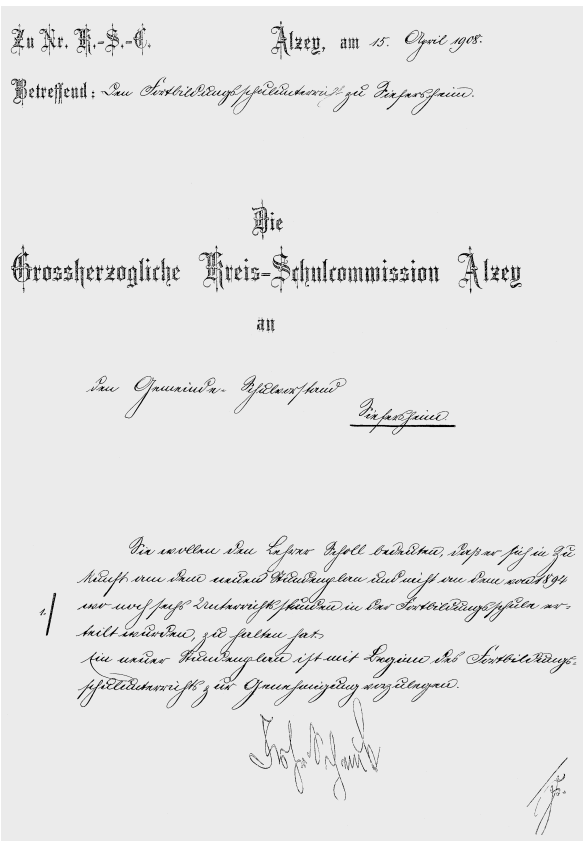 Zu Nr. K.-S.-C. Alzey, am 15. April 1908.
Betreffend: Den Fortbildungsschulunterricht zu Siefersheim.
Die
Grossherzogliche Kreis-Schulcommission Alzey
an
den Gemeinde-Schulvorstand
Siefersheim
Sie wollen den Lehrer Scholl bedeuten, daß er sich in Zu
kunft an dem neuen Stundenplan und nicht an dem von 1894
1. wo noch sechs Unterrichtsstunden in der Fortbildungsschule er-
teilt wurden, zu halten hat.
Ein neuer Stundenplan ist mit Beginn des Fortbildungs-
schulunterrichts zur Genehmigung vorzulegen.